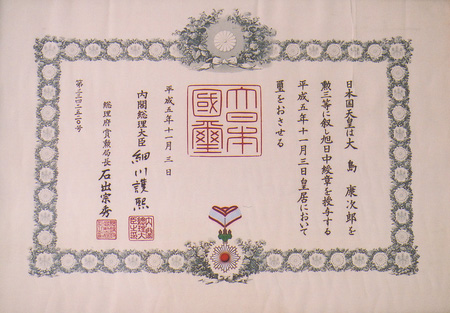 日本国天皇は大島康次郎を
勲三等に叙し旭日中綬章を授与する
平成五年十一月三日皇居において
璽をおさせる
大日本
國璽
平成五年十一月三日
内閣総理大臣 細川護熙
総理府賞勲局長 石出宗秀